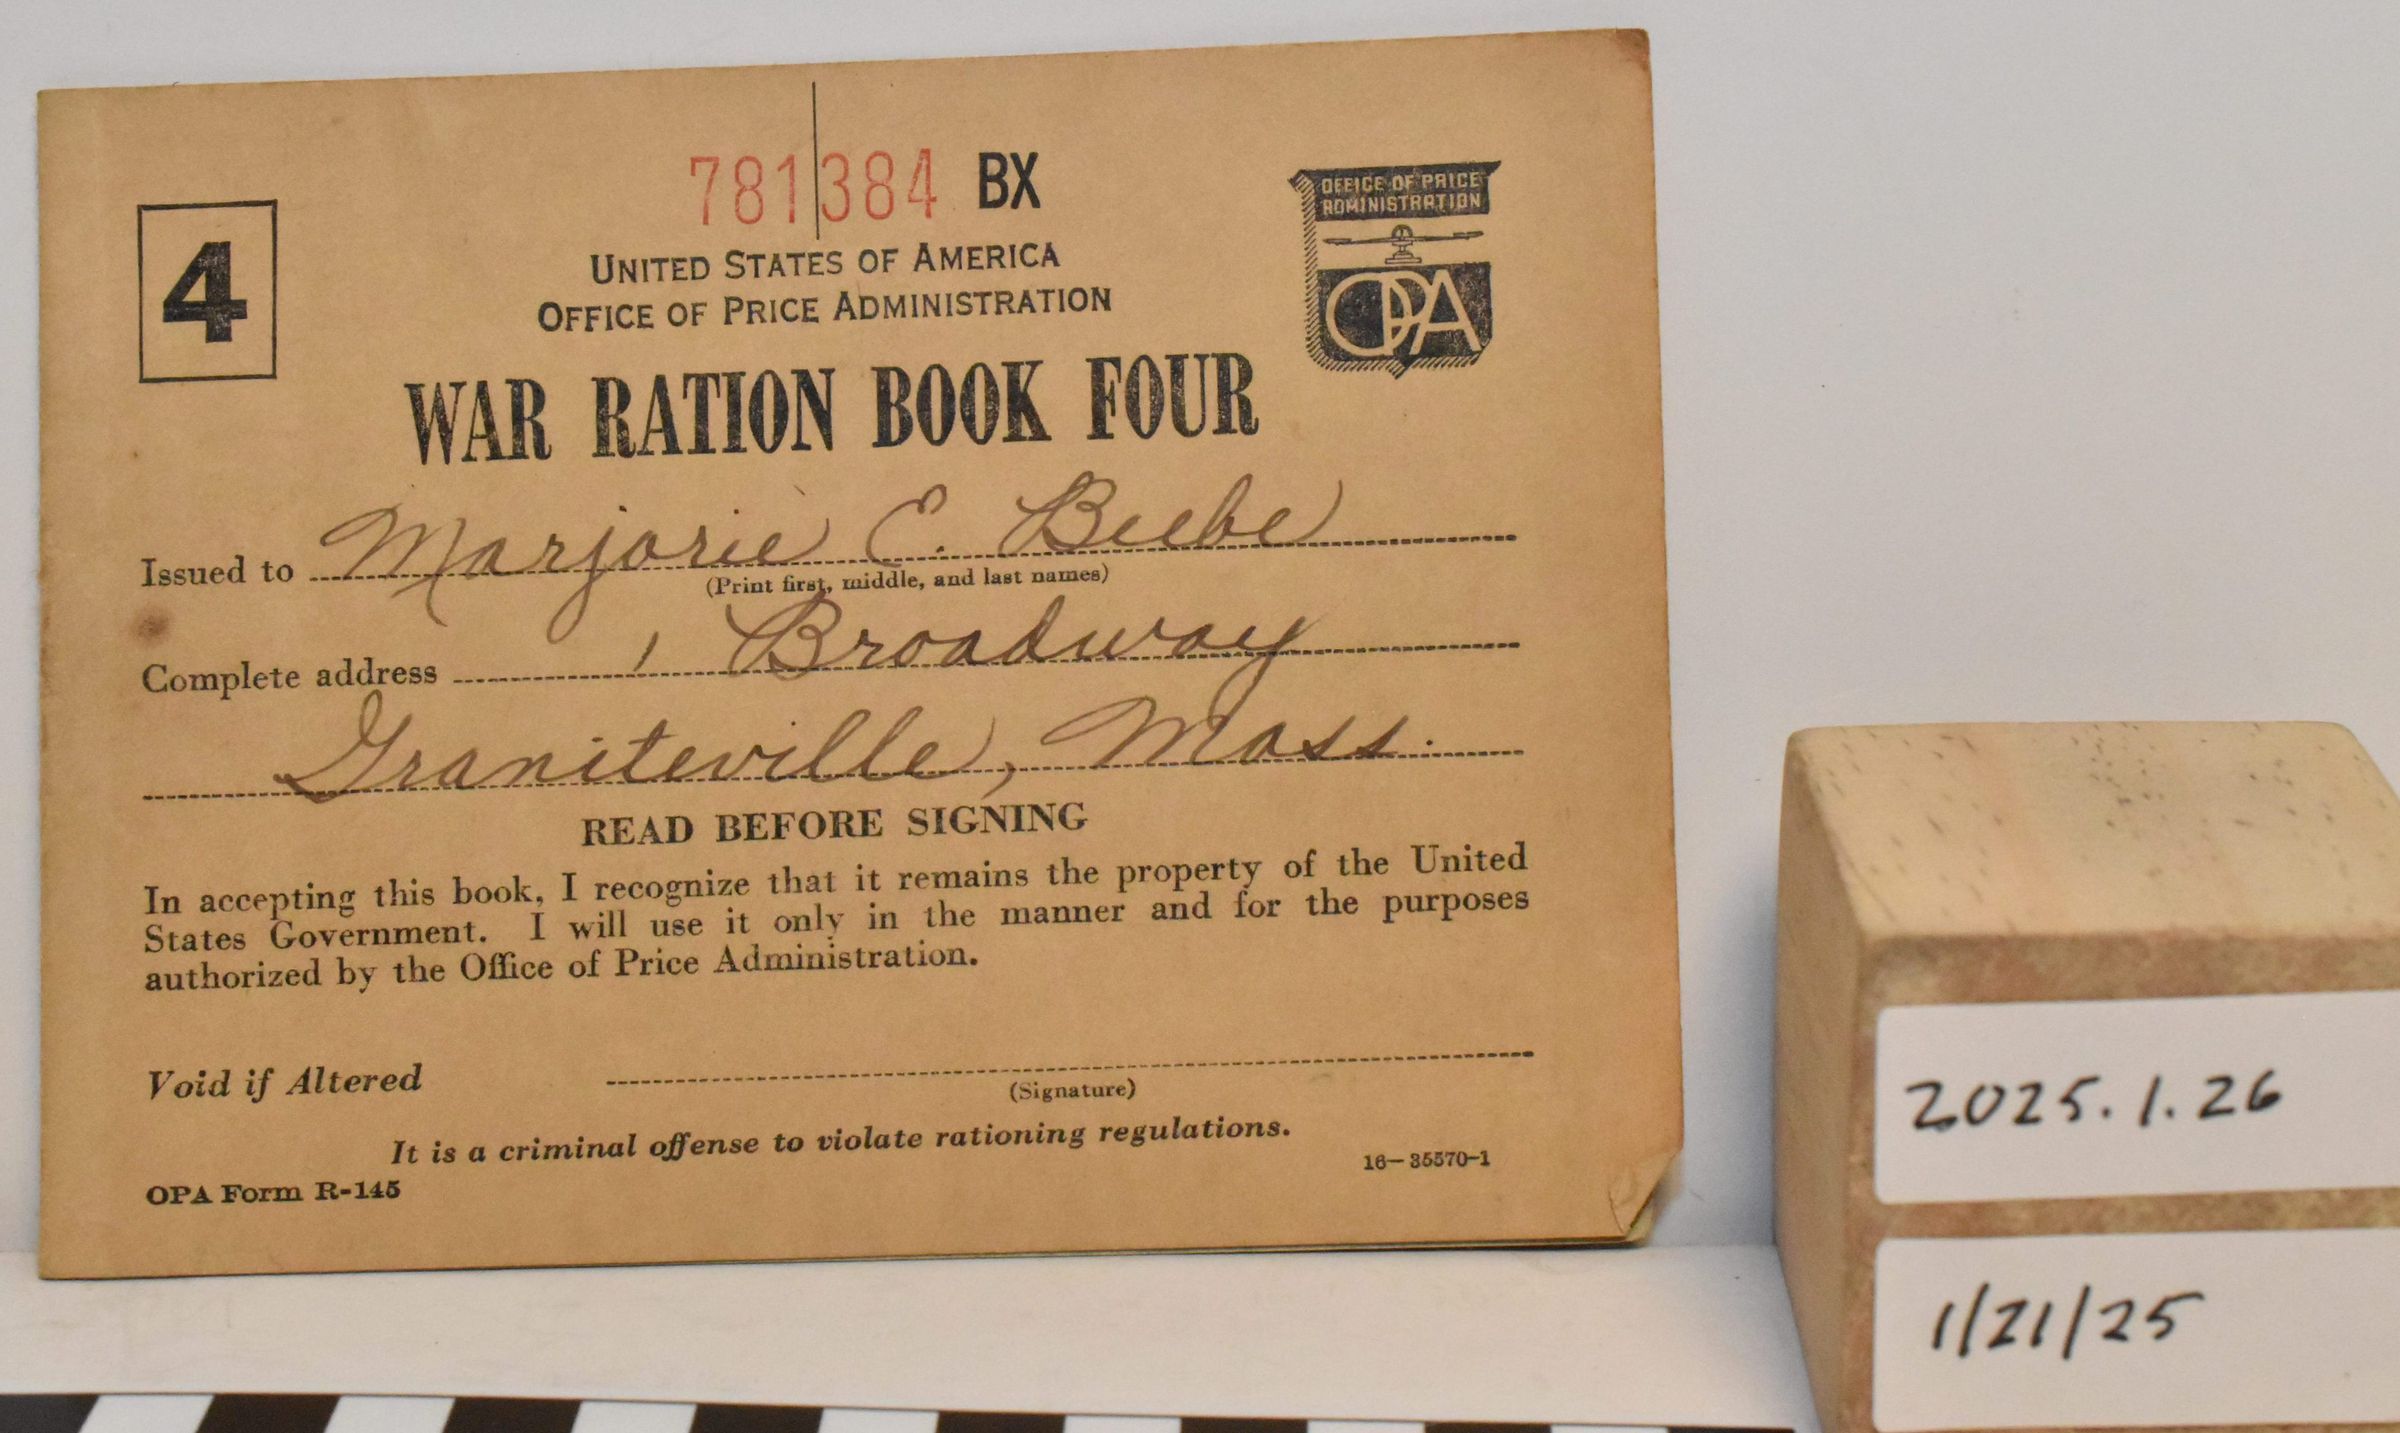 781384 BX
4
UNITED STATES OF AMERICA
OFFICE OF PRICE ADMINISTRATION
OFFICE OF PRICE
ADMINISTRATION
OPA
WAR RATION BOOK FOUR
Issued to Marjorie E. Beebe
(Print first, middle, and last names)
Complete address 1 Broadway
Graniteville, Mass.
READ BEFORE SIGNING
In accepting this book, I recognize that it remains the property of the United
States Government. I will use it only in the manner and for the purposes
authorized by the Office of Price Administration.
Void if Altered
(Signature)
It is a criminal offense to violate rationing regulations.
OPA Form R-145
16—35570-1
2025.1.26
1/21/25